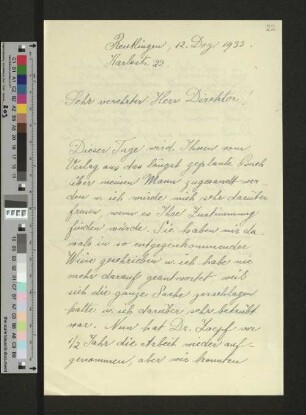 22
Reutlingen, 12. Dez. 1933
Karlsstr. 23
Sehr verehrter Herr Direktor!
Dieser Tage wird Ihnen vom
Verlag aus das längst geplante Buch
über meinen Mann zugesandt wer
den u. ich würde mich sehr darüber
freuen, wenn es Ihre Zustimmung
finden würde. Sie haben mir da
mals in so entgegenkommender
Weise geschrieben u. ich habe nie
mehr darauf geantwortet weil
sich die ganze Sache zerschlagen
hatte u. ich darüber sehr betrübt
war. Nun hat Dr. vor
1/2 Jahr die Arbeit wieder auf-
genommen, aber wir konnten